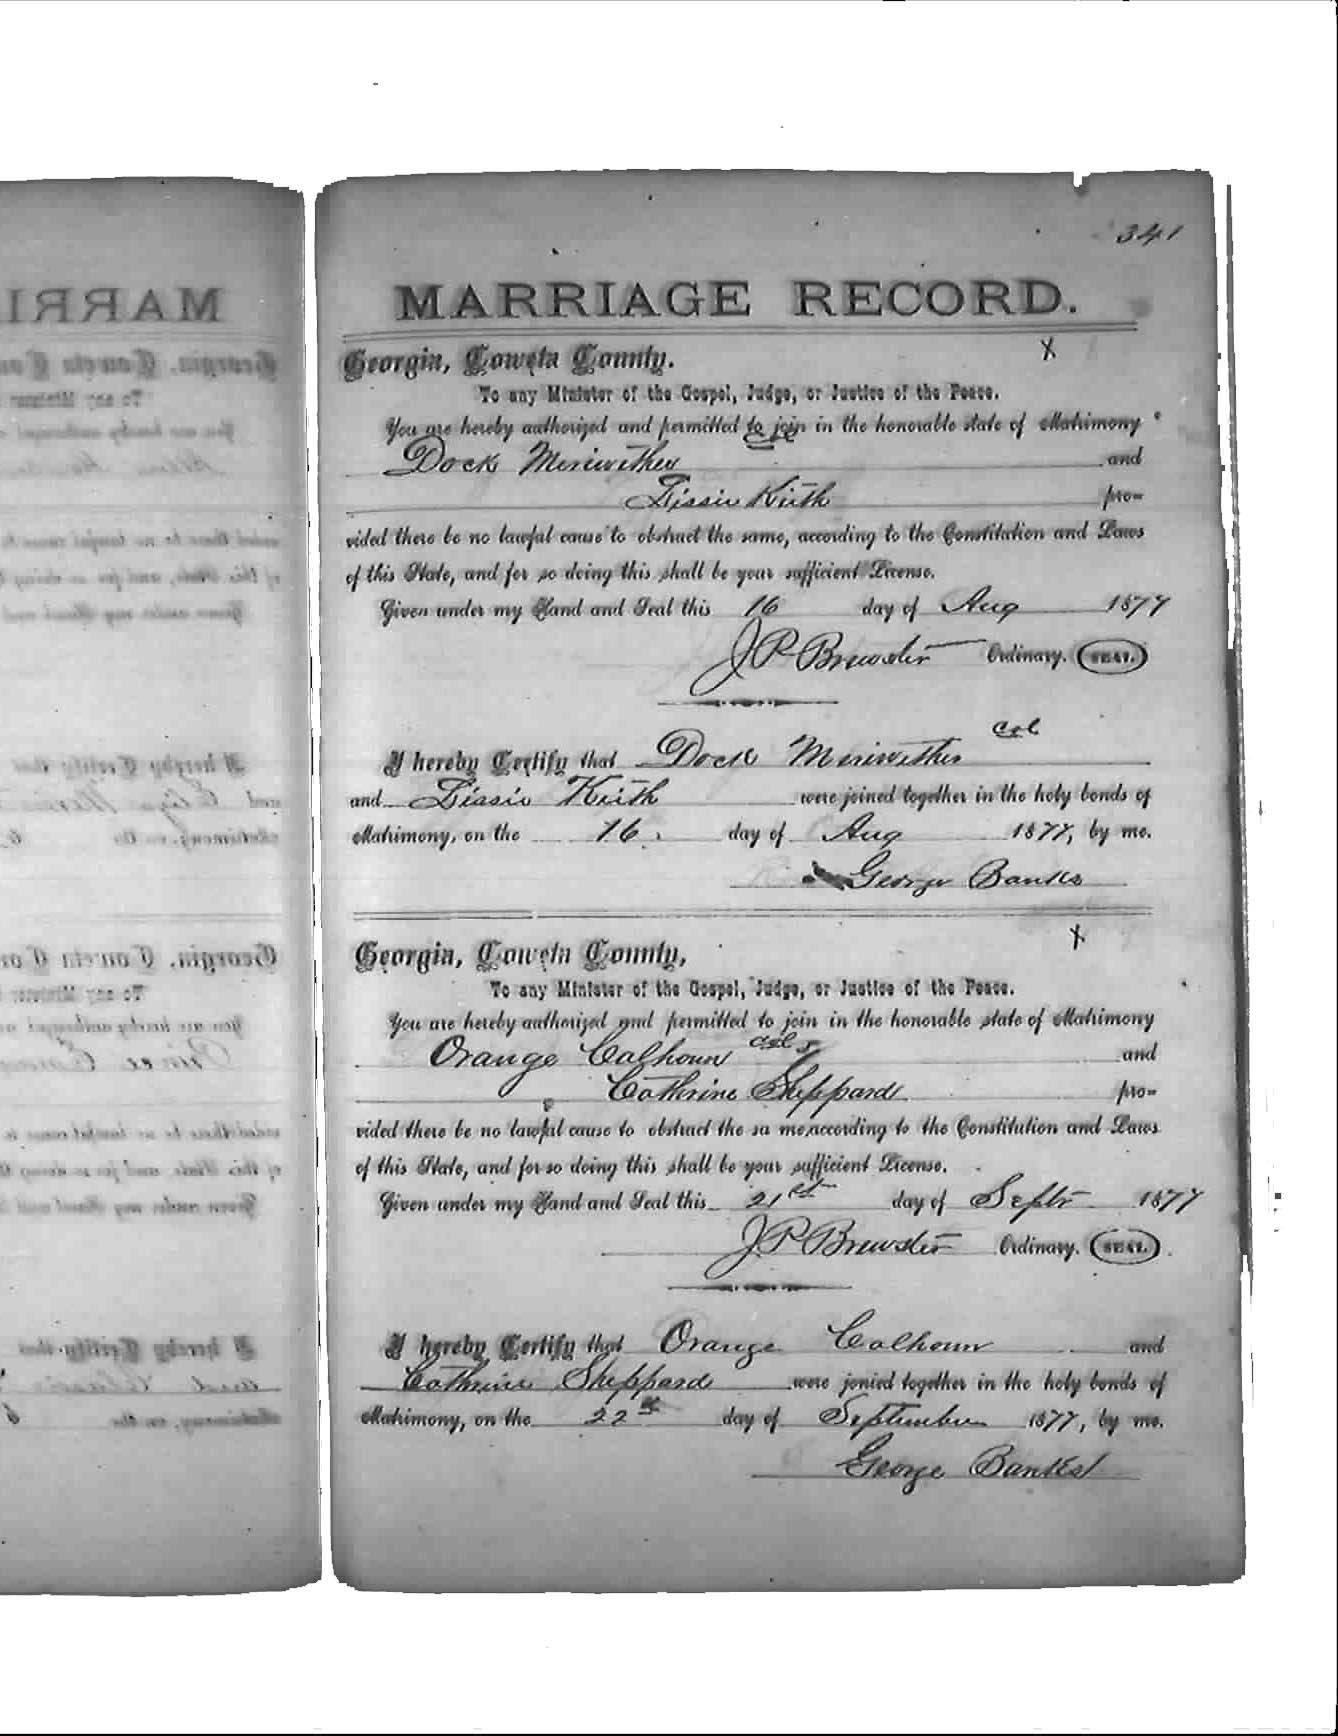 341
MARRIAGE RECORD.
X
Georgia, Coweta County.
To any Minister of the Gospel, Judge, or Justice of the Peace.
You are hereby authorized and permitted to join in the honorable state of Matrimony
Dock Meriwether and
Lissie Keith pro=
vided there be no lawful cause to obstruct the same, according to the Constitution and Laws
of this State, and for so doing this shall be your sufficient License.
Given under my Hand and Seal this 16 day of Aug 1877
J P Brewster Ordinary. SEAL.
I hereby Certify that Dock Meriwether col
and Lissie Keith were joined together in the holy bonds of
Matrimony, on the 16. day of Aug 1877, by me.
George Banks
X
Georgia, Coweta County,
To any Minister of the Gospel, Judge, or Justice of the Peace.
You are hereby authorized and permitted to join in the honorable state of Matrimony
Orange Calhoun col and
Cathrine Sheppard pro=
vided there be no lawful cause to obstract the sa me, according to the Constitution and Laws
of this State, and for so doing this shall be your sufficient License.
Given under my Hand and Seal this 21st day of Septr 1877
J P Brewster Ordinary. SEAL.
I hereby Certify that Orange Calhoun and
Cathrine Sheppard were jonied together in the holy bonds of
Matrimony, on the 22 day of September 1877, by me.
George Banks